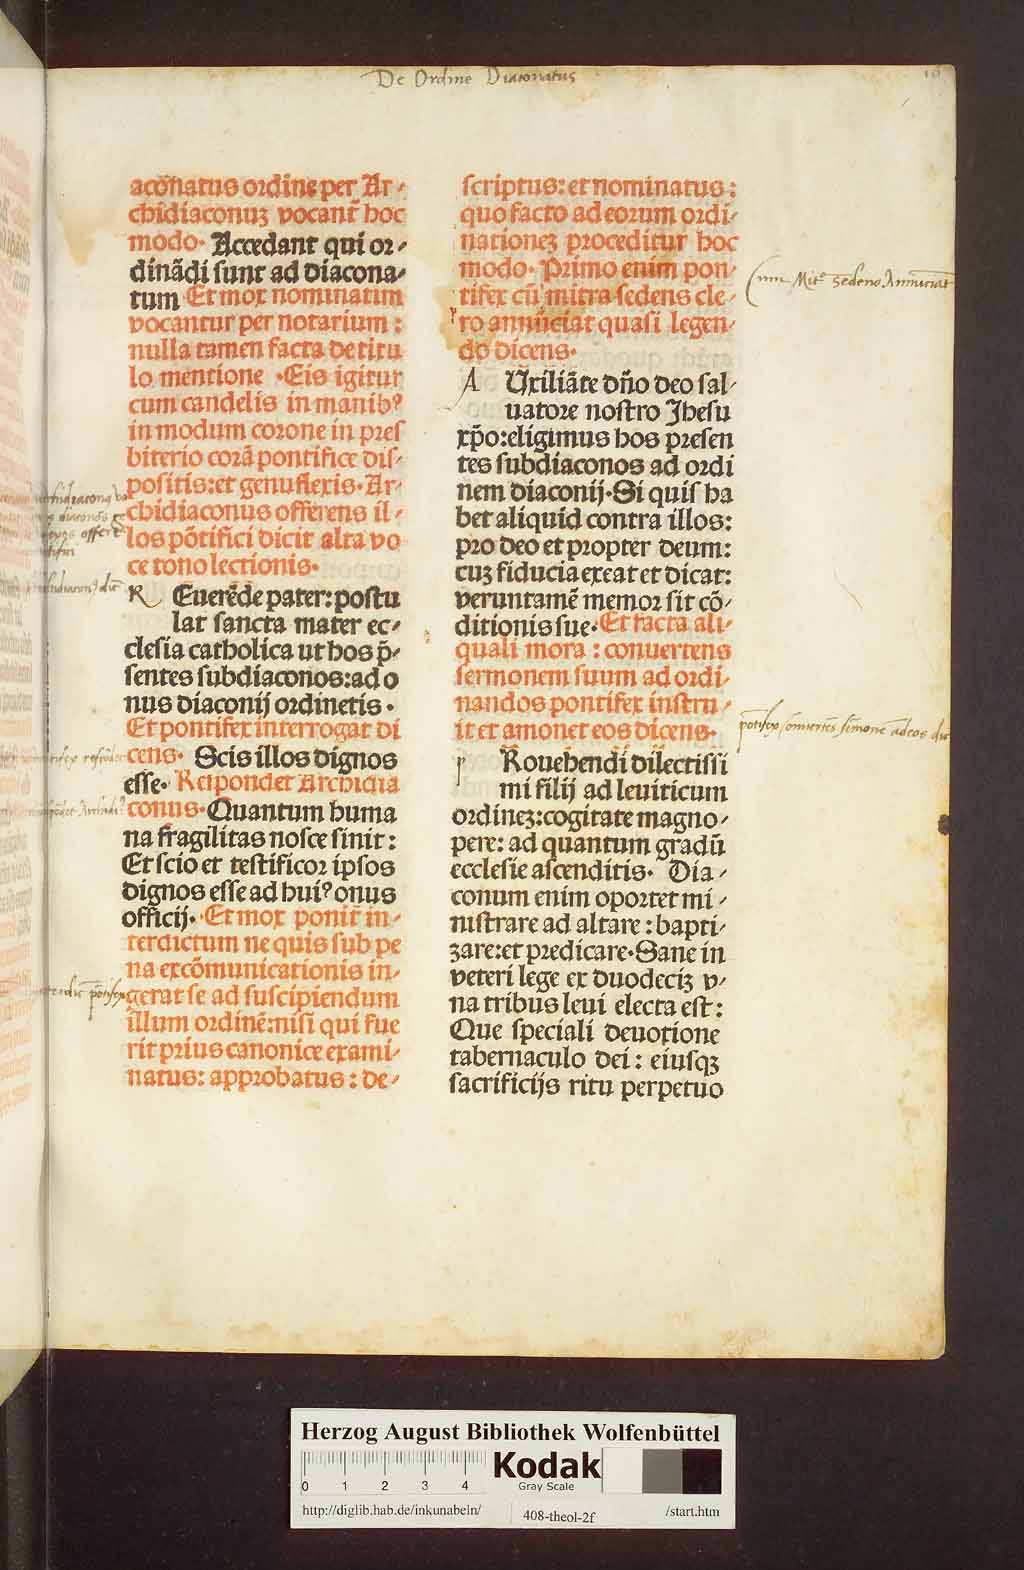 De Ordine Diaconatus
aconatus ordine per Ar-
chidiaconuꝫ vocant᷑ hoc
modo· Accedant qui or-
dinādi sunt ad diacona-
tum Et mox nominatim
vocantur per notarium :
nulla tamen facta de titu
lo mentione ·Eis igitur
cum candelis in manibꝰ
in modum corone in pres
biterio corā pontifice dis-
positis:et genuflexis·Ar-
chidiaconus offerens il-
los pōtifici dicit alta vo
ce tono lectionis·
R Euerēde pater:postu
lat sancta mater ec-
clesia catholica ut hos p̄-
sentes subdiaconos:ad o
nus diaconij ordinetis ·
Et pontifex interrogat di
cens· Scis illos dignos
esse· Respondet Archidia
conus·Quantum huma
na fragilitas nosce sinit :
Et scio et testificor ipsos
dignos esse ad huiꝰ onus
officij· ·Et mox ponit᷑ in-
terdictum ne quis sub pe
na excōmunicationis in-
gerat se ad suscipiendum
illum ordinē:nisi qui fue
rit prius canonice exami-
natus: approbatus : de-
scriptus: et nominatus :
quo facto ad eorum ordi-
nationeꝫ proceditur hoc
modo· Primo enim pon-
tifex cū mitra sedens cle-
ro annūciat quasi legen-
do dicens·
A Uxiliāte dn̄o deo sal-
uatore nostro Jhesu
xp̄o:eligimus hos presen
tes subdiaconos ad ordi
nem diaconij·Si quis ha
bet aliquid contra illos:
pro deo et propter deum:
cuꝫ fiducia exeat et dicat:
veruntamē memor sit cō-
ditionis sue·Et facta ali-
quali mora : conuertens
sermonem suum ad ordi-
nandos pontifex instru-
it et amonet eos dicens·
p Rouehendi dilectissi
mi filij ad leuiticum
ordineꝫ:cogitate magno-
pere: ad quantum gradū
ecclesie ascenditis· Dia-
conum enim oportet mi-
nistrare ad altare : bapti-
zare:et predicare·Sane in
veteri lege ex duodeciꝫ v-
na tribus leui electa est :
Que speciali deuotione
tabernaculo dei : eiusqꝫ
sacrificijs ritu perpetuo
Cum Mit͛ sedens Annuciat
pōtifex cōuertēs s͛monē ad eos dic
Herzog August Bibliothek Wolfenbüttel
0 1 2 3 4
Kodak
Gray Scale
http://diglib.hab.de/inkunabeln/
408-theol-2f
/start.htm